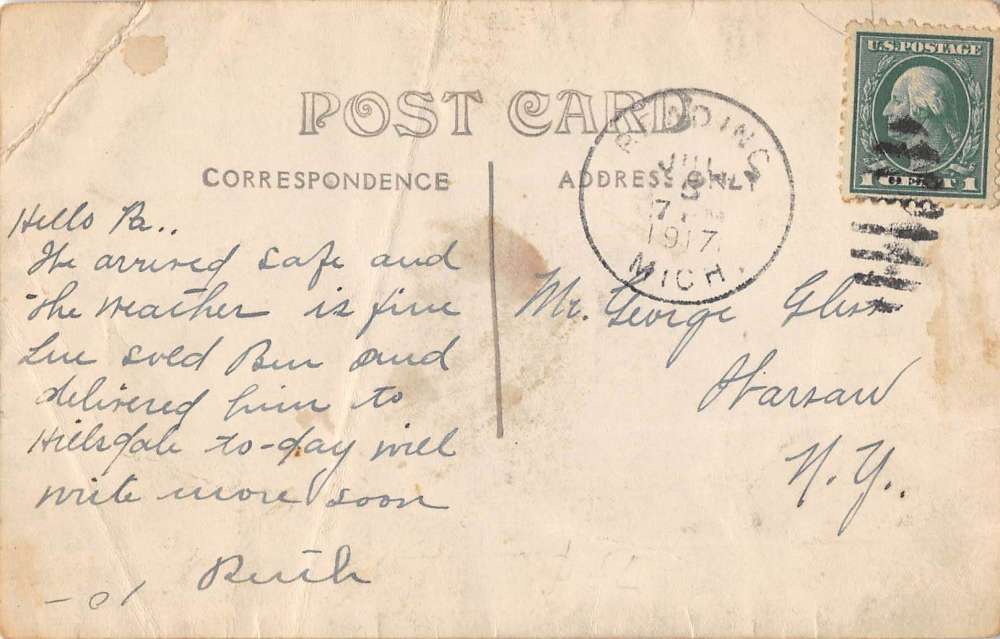 POST CARD
CORRESPONDENCE
ADDRESS ONLY
U.S. POSTAGE
1 CENT 1
READING
JUL
7
1917
MICH.
Hello Pa..
We arrived safe and
the weather is fine
sold Ben and
delivered him to
Hillsdale to-day will
write more soon
Ruth
Mr. George
Warsaw
N.Y.